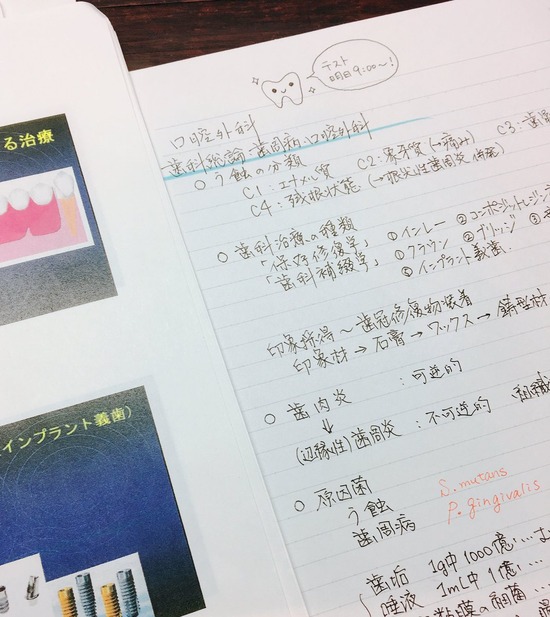 る治療
インプラント義歯)
テスト
明日9:00〜!
口腔外科
歯科総論 歯周病 口腔外科
○ う蝕の分類
C1:エナメル質 C2:象牙質(→痛み) C3:歯髄
C4:残根状態(→根尖性歯周炎 併発)
○ 歯科治療の種類
「保存修復学」 ①インレー ②コンポジットレジン
「歯科補綴学」 ①クラウン ②ブリッジ ③
④インプラント義歯
印象採得〜歯冠修復物装着
印象材→石膏→ワックス→鋳型材
○ 歯肉炎 :可逆的
↓
(辺縁性)歯周炎:不可逆的 組織
○ 原因菌
う蝕 S.mutans
歯周病 P.gingivalis
歯垢 1g中1000億!…
唾液 1mL中1億!…
粘膜の細菌…